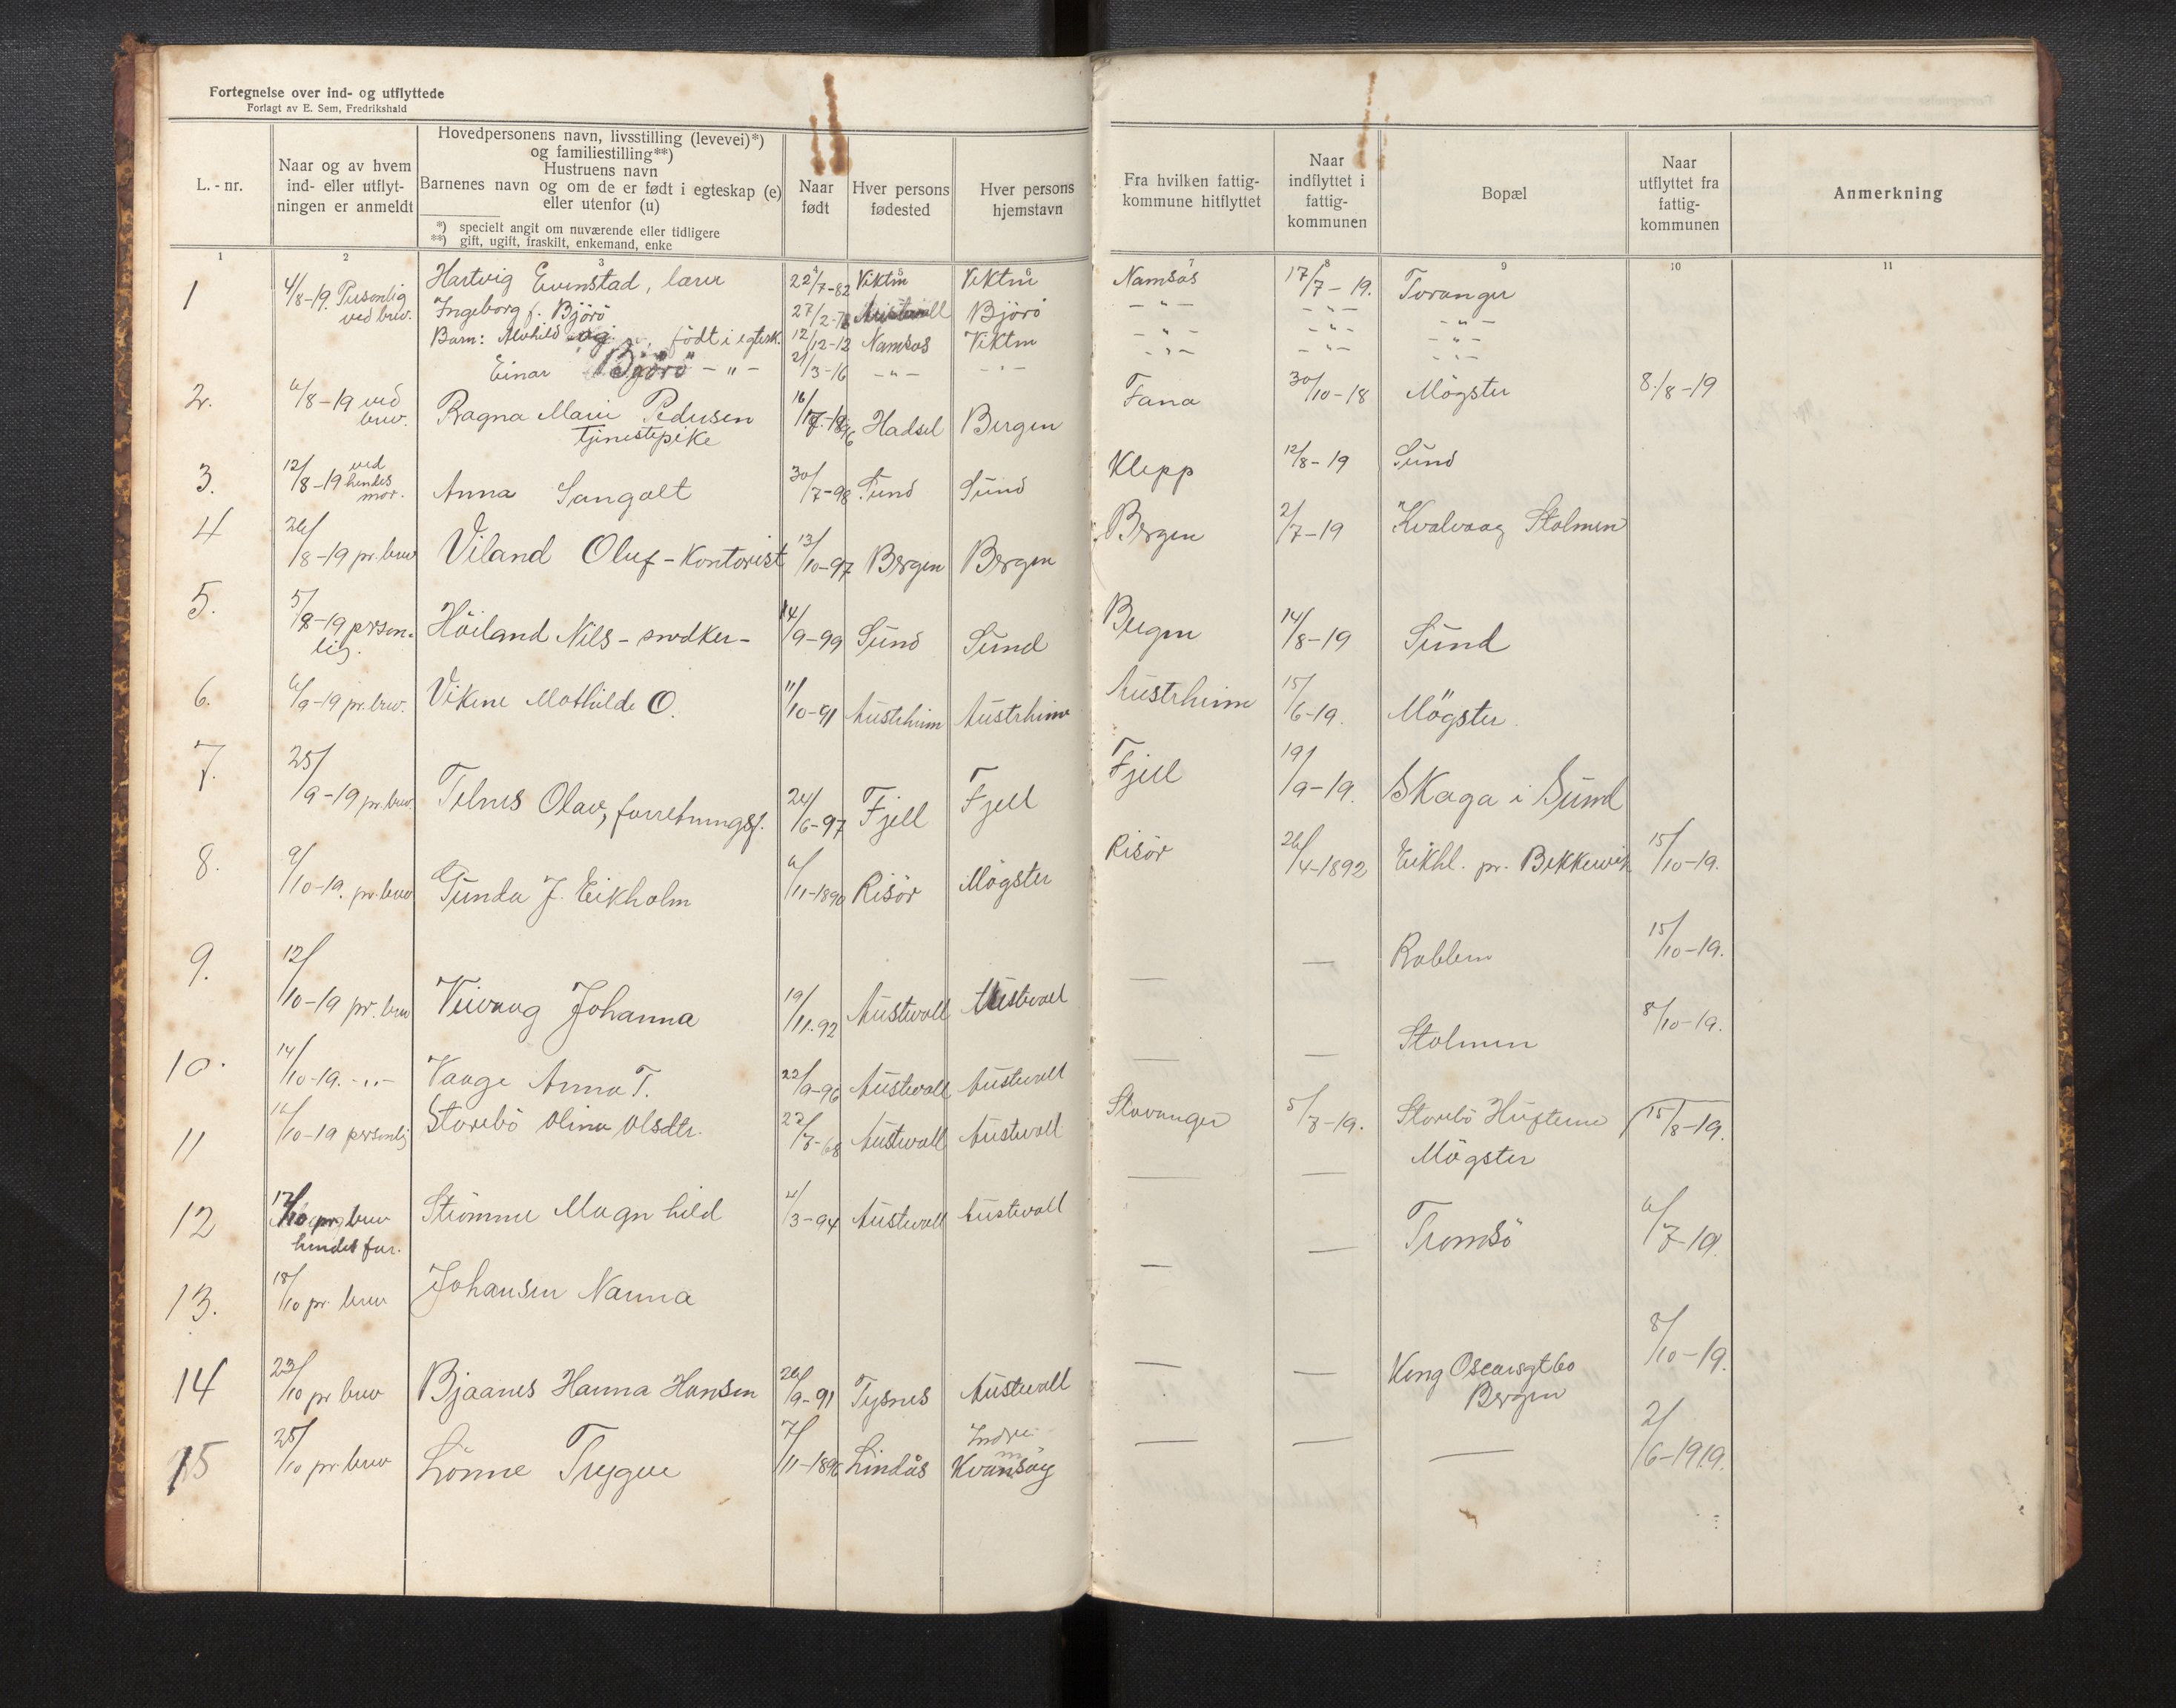 Fortegnelse over ind- og utflyttede
Forlagt av E. Sem, Fredrikshald
L.-nr.
Naar og av hvem
ind- eller utflyt-
ningen er anmeldt
Hovedpersonens navn, livsstilling (levevei)*)
og familiestilling**)
Hustruens navn
Barnenes navn og om de er født i egteskap (e)
eller utenfor (u)
*) specielt angit om nuværende eller tidligere
**) gift, ugift, fraskilt, enkemand, enke
Naar
født
Hver persons
fødested
Hver persons
hjemstavn
Fra hvilken fattig-
kommune hitflyttet
Naar
indflyttet i
fattig-
kommunen
Bopæl
Naar
utflyttet fra
fattig-
kommunen
Anmerkning
1 2 3 4 5 6 7 8 9 10 11
1 4/8-19. Personlig Hartvig Evenstad, lærer 22/7-82 Viktin Viktin Namsos 17/7-19. Toranger
ved brev. Ingeborg f. Björö 27/2- Austevoll Björö -"- -"- -"-
Barn: Alvhild og født i egtesk. 12/12-12 Namsos Viktin -"- -"- -"-
Einar Björö -"- 21/3-16 -"- -"- -"- -"- -"-
2. 6/8-19 ved Ragna Marie Pedersen Hadsel Bergen Fana 30/10-18 Mögster 8./8-19
brev. tjenestepike
3. 12/8-19 ved Anna Sangolt 30/7-98 Sund Sund Klepp 12/8-19 Sund
hendes
mor.
4 26/8-19 pr. brev Viland Oluf - Kontorist 13/10-97 Bergen Bergen Bergen 2/7-19 Kvalvaag Stolmen
5. 5/9-19 person- Höiland Nils - snedker- 14/9-99 Sund Sund Bergen 14/8-19 Sund
lig.
6. 6/9-19 pr. brev. Vikene Mathilde O. 11/10-91 Austrheim Austrheim Austrheim 15/6-19. Mögster.
7. 25/9-19 pr. brev. Telnes Olav, forretningsf. 24/6-97 Fjell Fjell Fjell 19/9-19. Skaga i Sund
8. 9/10-19. pr. brev Gunda J. Eikholm 6/11-1890 Risör Mögster Risör 26/4-1892 Eikhl. pr. Bekkervik 15/10-19.
9. 12/10-19 pr. brev Veivaag Johanna 19/11.92 Austevoll Austevoll — — Rabben 15/10-19.
10. 14/10-19. -"- Vaage Anna T. 22/9-96 Austevoll Austevoll — — Stolmen 8/10-19.
11 16/10-19 personlig Storebö Olina Olsdtr. 22/8-68 Austevoll Austevoll Stavanger 5/8-19. Storebö Hufterne 15/8-19.
12 17/10 pr. brev Strömme Magnhild 4/3-94 Austevoll Austevoll — — Mögster
hendes far.
13. 18/10 pr. brev Johansen Nanna — — Tromsö 6/7-19.
14 23/10 pr brev Bjaanes Hanna Hansen 26/9-91 Tysnes Austevoll — — Kong Oscarsgt 60 8/10-19.
Bergen
15 25/10 pr. brev Lönne Trygve 7/11-1896 Lindås Indre — — — 2/6-1919.
Kvansöy